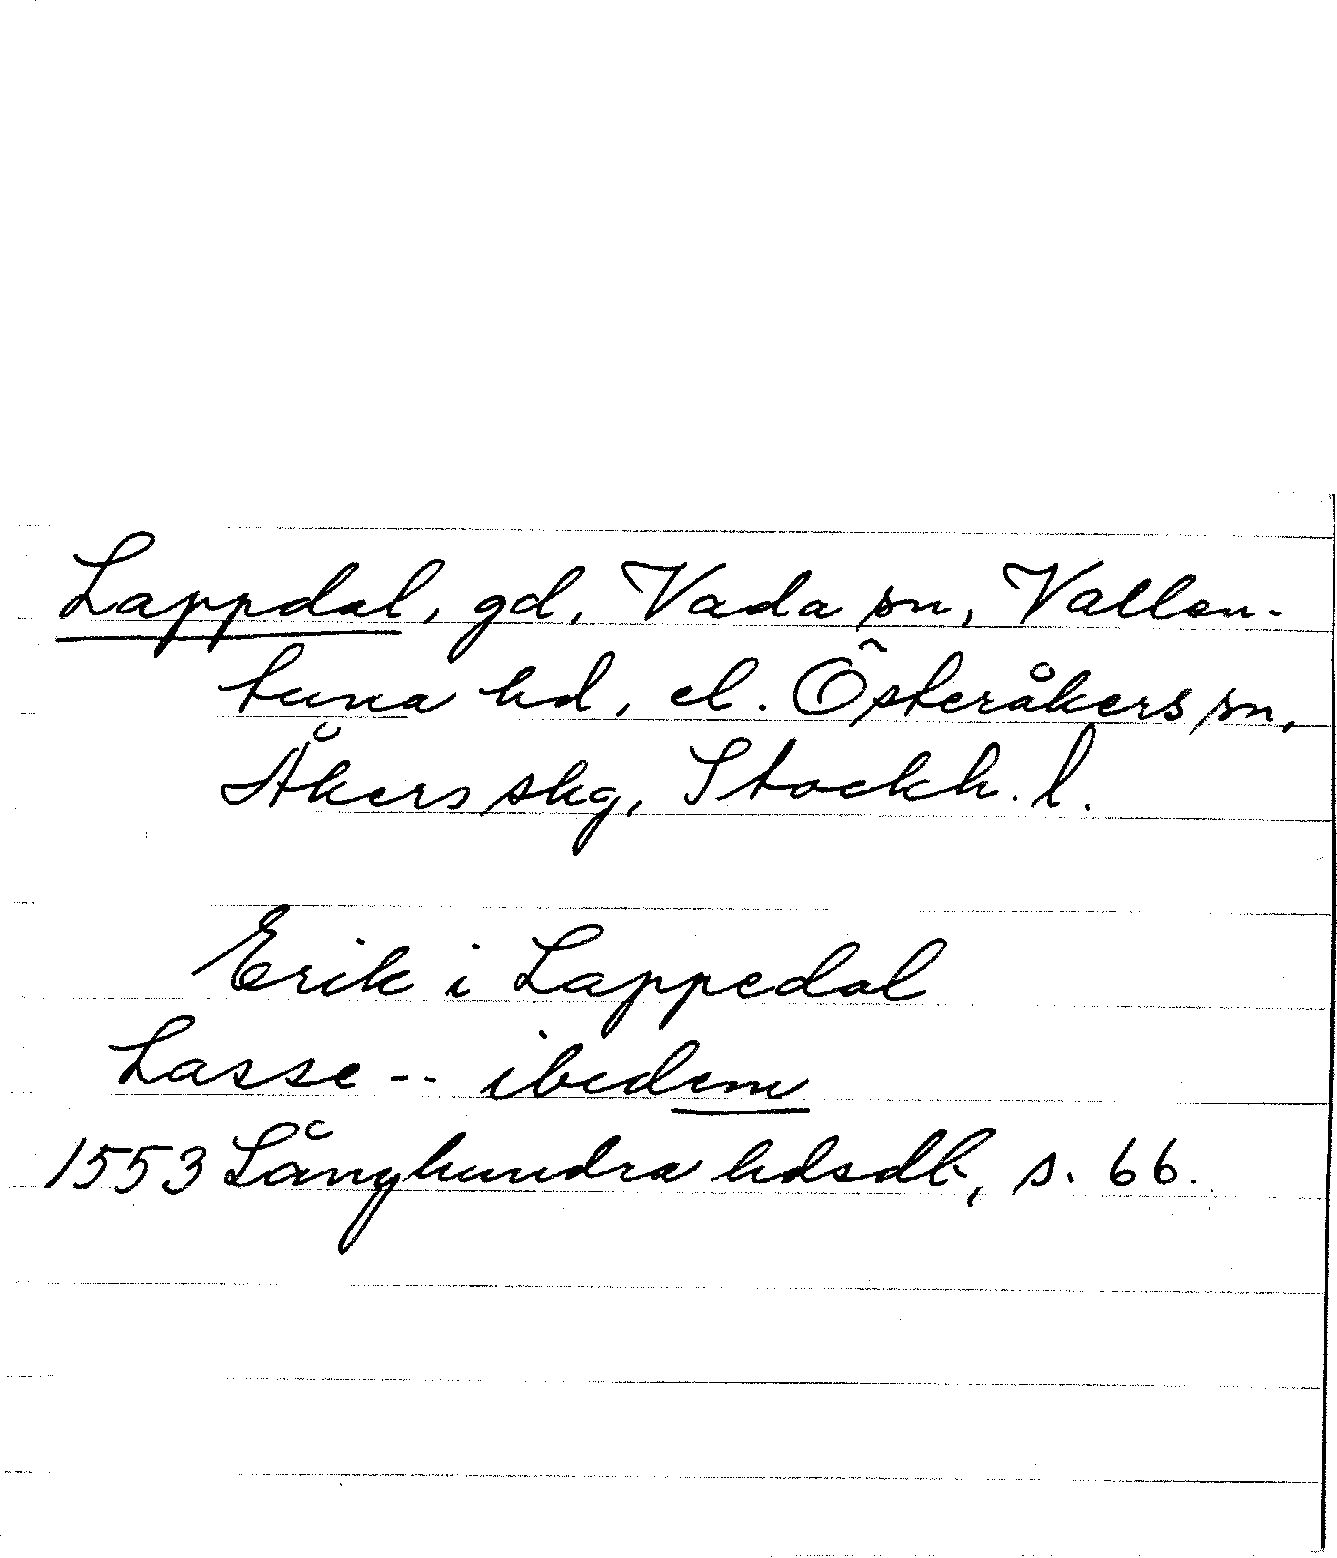 Lappdal, gd, Vada sn, Vallen-
tuna hd, el. Österåkers sn,
Åkers skg, Stockh. l.
Erik i Lappedal
Lasse -- ibedem
1553 Långhundra hdsdb, s. 66.